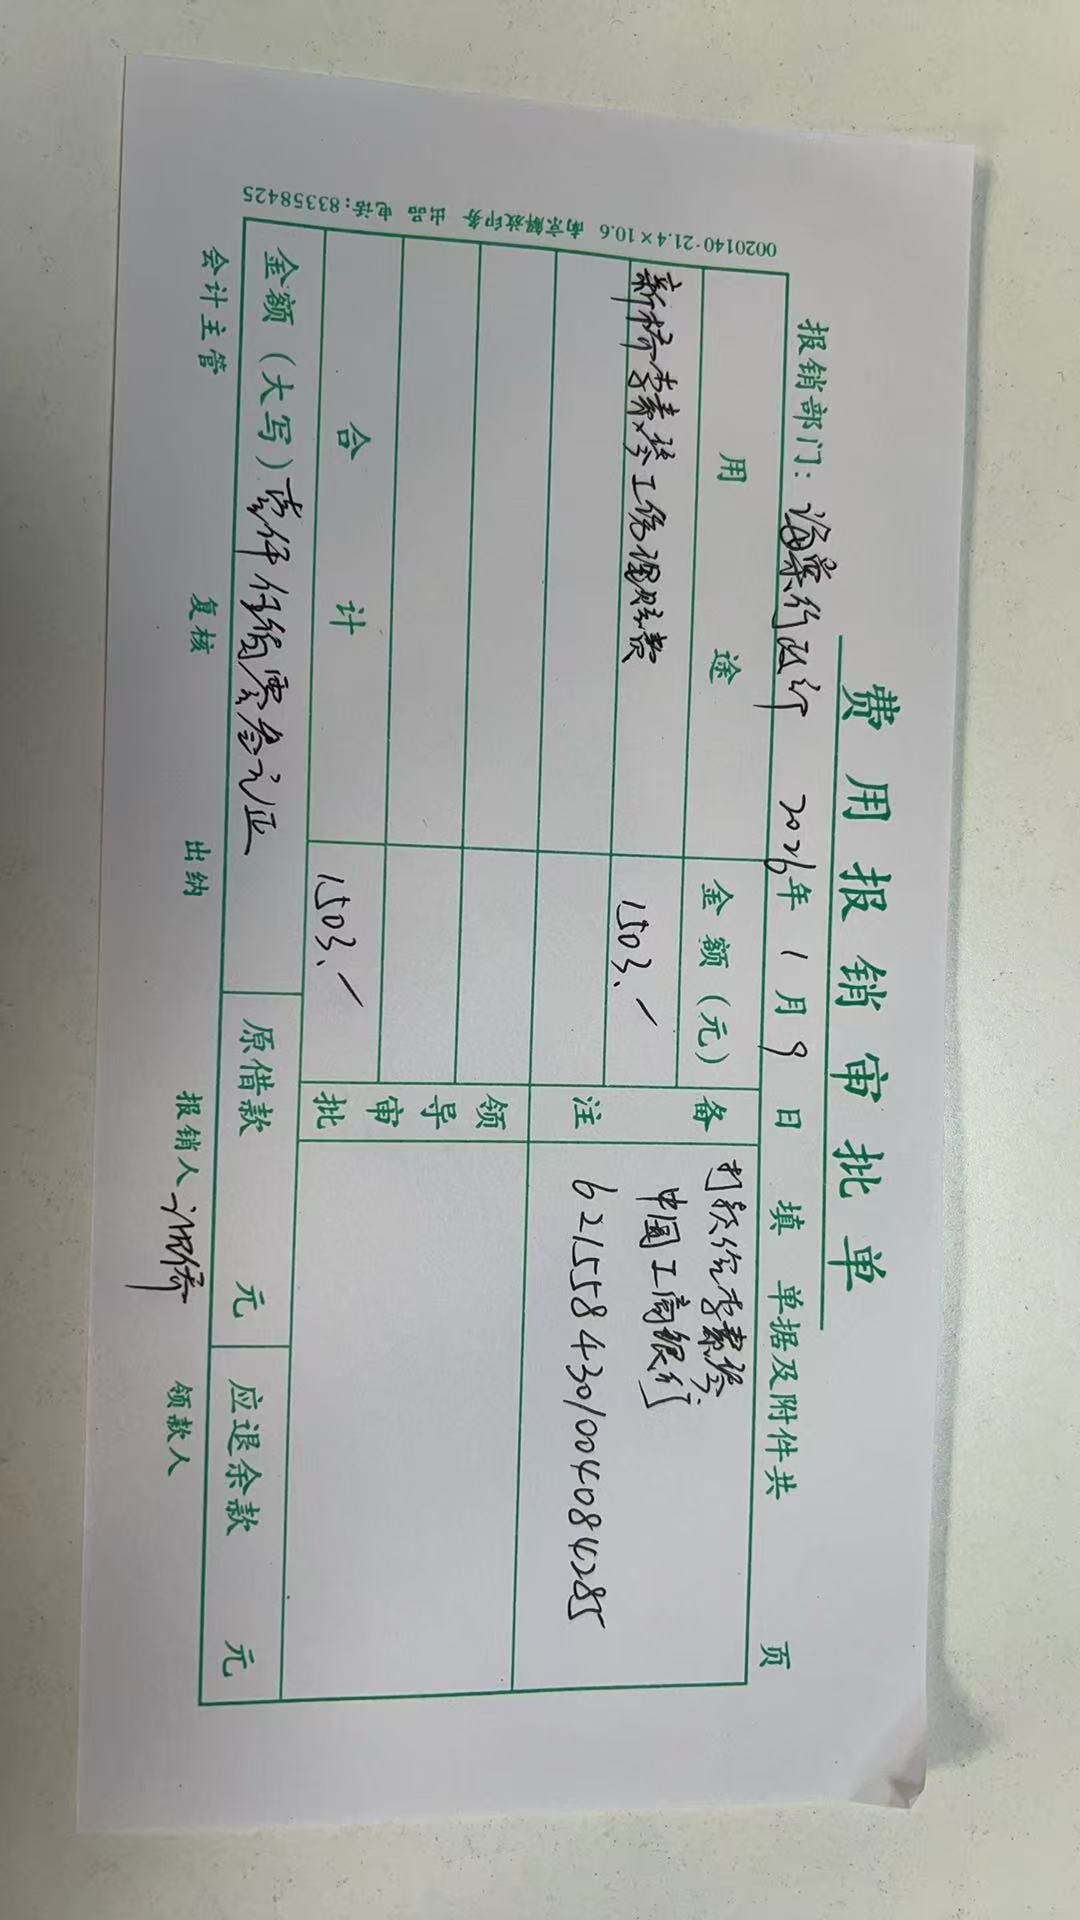 费用报销审批单
报销部门：海棠行政部 2026年1月9日填 单据及附件共 页
用途 金额（元） 备注
新桥李素珍工伤理赔费 1503.— 打款给李素珍
中国工商银行
6215584301004084285
领导审批
合计 1503.—
金额（大写）壹仟伍佰零叁元正 原借款 元 应退余款 元
会计主管 复核 出纳 报销人 领款人
0020140-21.4×10.6 南京解放印务 出品 电话：83358425